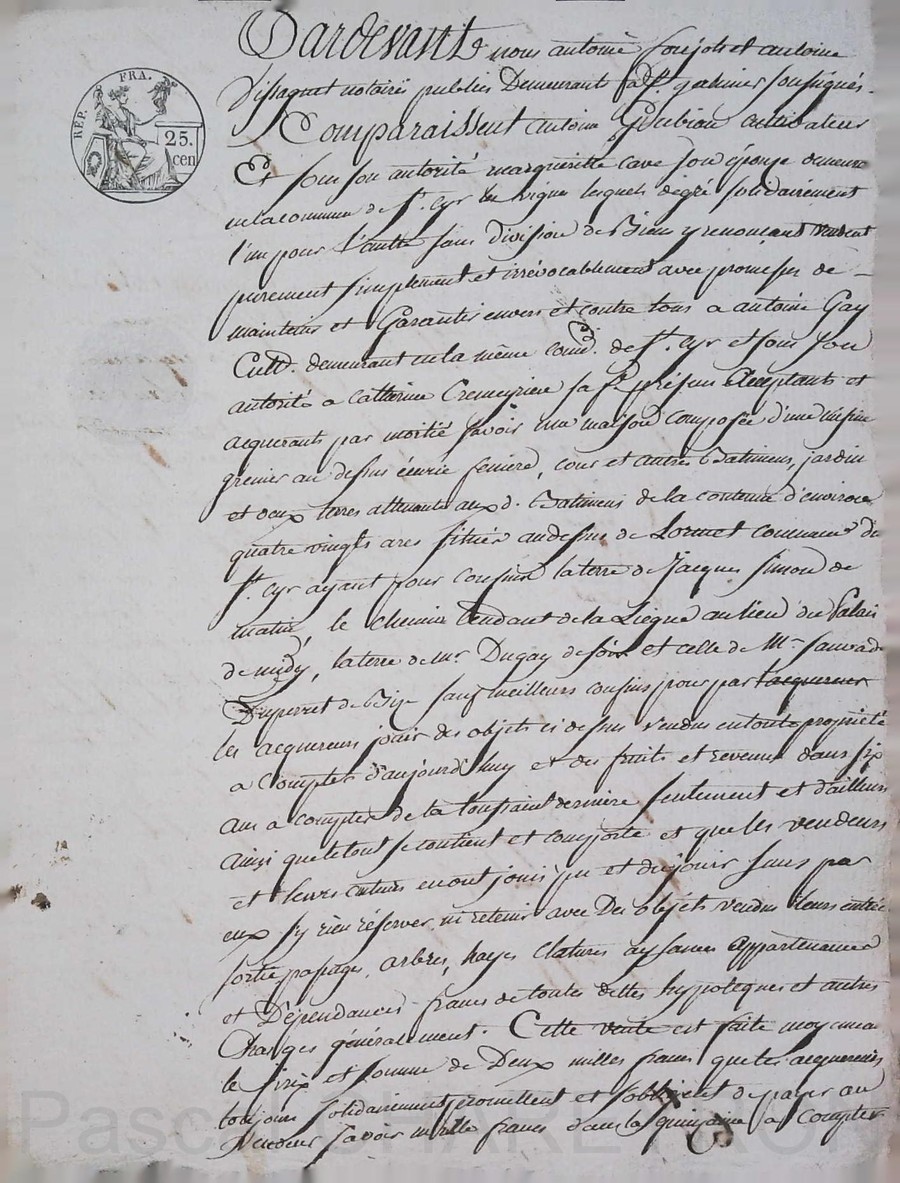 RÉP. FRA.
25.
cen
Pardevant nous antoine et antoine
notaires publics Demeurant a St galmier soussignés.
Comparaissent antoine Goubian cultivateur
Et sous son autorité margueritte cave son épouse demeur
en la commune de St. Cyr les vignes lesquels degré solidairement
l'un pour l'autre sans division de Bien y renonçant vendent
purement simplement et irrévocablement avec promesse de
maintenir et Garantir envers et contre tous a antoine Gay
Cult. demeurant en la même comne. de St. Cyr et sous son
autorité a Catherine Cremeyriere sa fe. présens acceptants et
acquerants par moitié savoir une maison composée d'une
grenier au dessus écurie feniere, cour et autres Batimens, jardin
et deux terres attenants aux d. Batimens de la contenue d'environ
quatre vingts ares situés au dessus de Lormet commune de
St. Cyr ayant pour confins la terre de Jacques Simon de
matin, le chemin tendant de la Liegue au lieu du Palais
de midy, la terre de Mr. Dugay de soir et celle de Mr.
Duperret de Bize sauf meilleurs confins pour par l'acquereur
les acquereurs jouir des objets ci dessus vendus en toute propriété
a Compter d'aujourd'huy et des fruits et revenus dans six
ans a compter de la toussaint derniere seulement et d'ailleurs
ainsi que le tout se contient et comporte et que les vendeurs
et leurs auteurs en ont joui pu et du jouir sans par
eux s'y rien réserver ni retenir avec Des objets vendus leurs entrée
sortie passages, arbres, hayes clatures aysances appartenances
et Dépendances francs de toutes dettes hypoteques et autres
Charges généralement. Cette vente est faite moyennan
le prix et somme de Deux milles francs que les acquereurs
toujours solidairement promettent et s'obligent de payer au
vendeur savoir mille francs dans la quinzaine a Compter